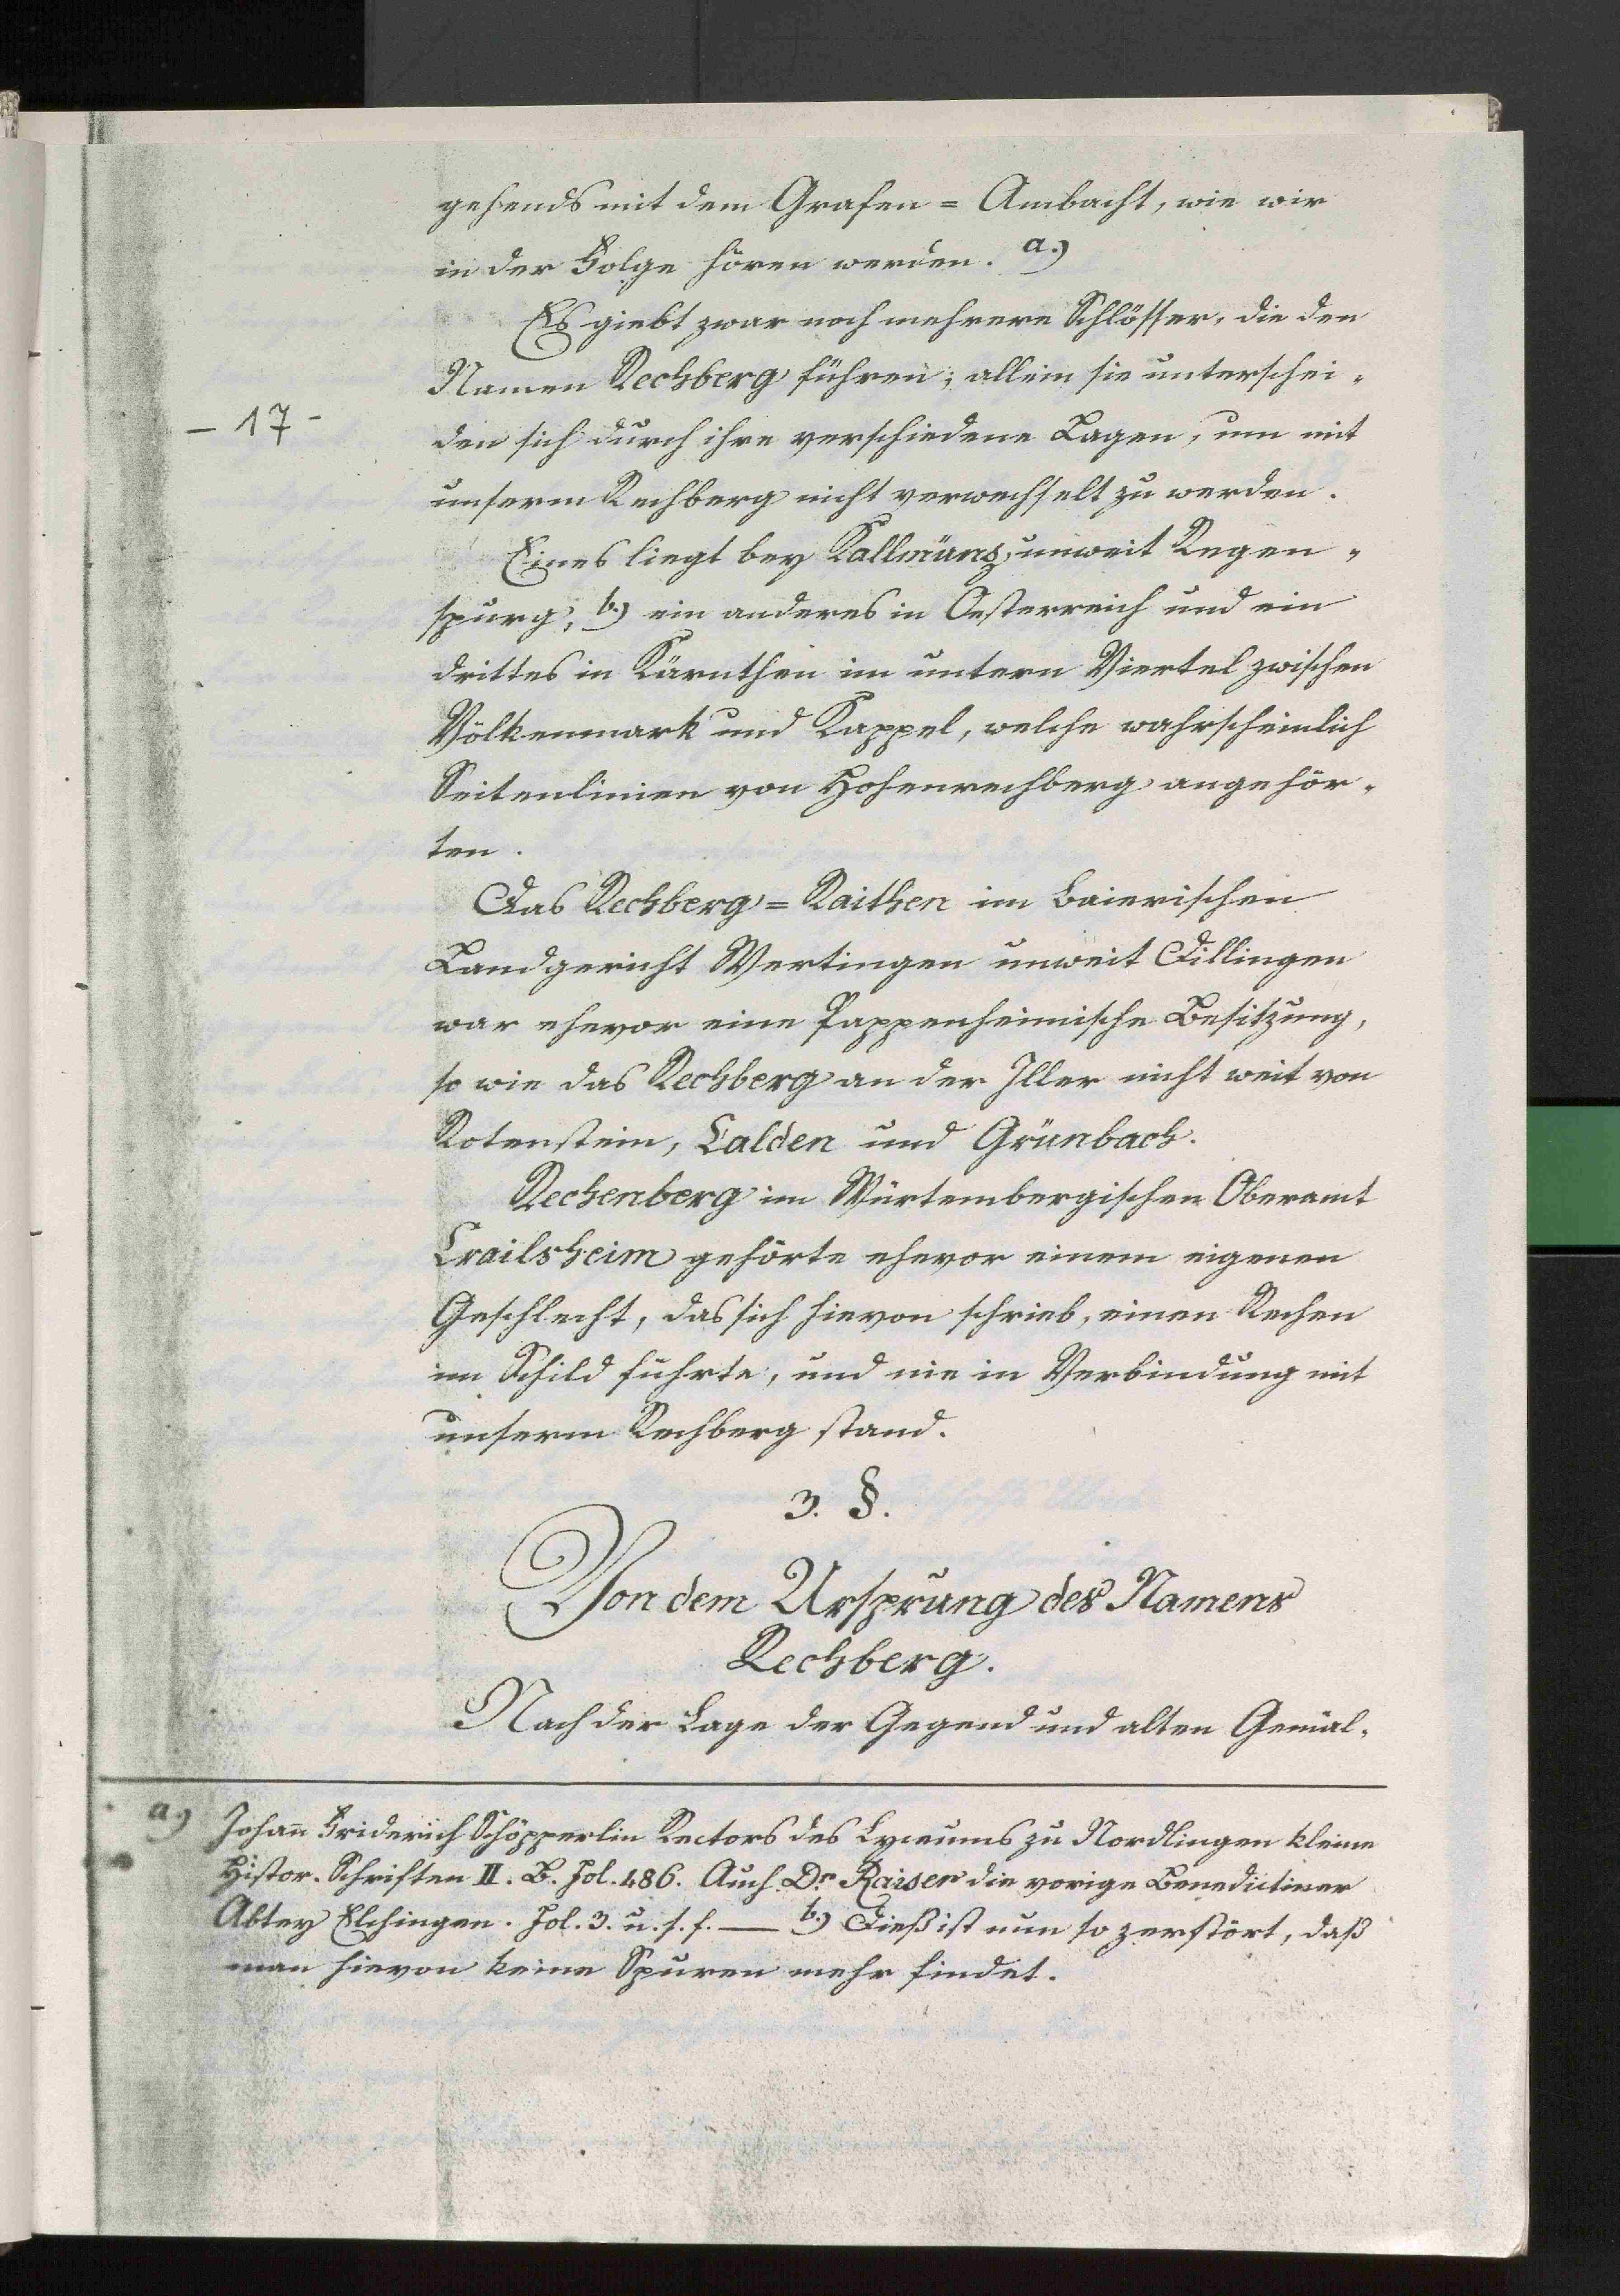 gehends mit dem Grafen = Ambacht, wie wir
in der Folge hören werden. a.)
Es giebt zwar noch mehrere Schlösser, die den
Namen Rechberg führen; allein sie unterschei-
- 17 -
den sich durch ihre verschiedene Lagen, um mit
unserm Rechberg nicht verwechselt zu werden.
Eines liegt bey Kallmünz, unweit Regen-
spurg, b.) ein anderes in Oesterreich und ein
drittes in Kärnthen im untern Viertel zwischen
Völkenmark und Kappel, welche wahrscheinlich
Seitenlinien von Hohenrechberg angehör-
ten.
Das Rechberg = Raithen im Baierischen
Landgericht Wertingen unweit Dillingen
war ehevor eine Pappenheimische Besitzung,
so wie das Rechberg an der Iller nicht weit von
Rotenstein, Calden und Grünbach.
Rechenberg im Würtembergischen Oberamt
Crailsheim gehörte ehevor einem eigenen
Geschlecht, das sich hievon schrieb, einen Rechen
im Schild führte, und nie in Verbindung mit
unserm Rechberg stand.
3. §.
Von dem Ursprung des Namens
Rechberg.
Nach der Lage der Gegend und alten Gemäl-
a.) Johan̄ Friderich Schöpperlin Rectors des Lyceums zu Nordlingen kleine
Histor. Schriften II. B. Fol. 486. Auch Dr. Raiser die vorige Benedictiner
Abtey Elchingen. Fol. 3. u. s. f. — b.) Dieß ist nun so zerstört, daß
man hievon keine Spuren mehr findet.